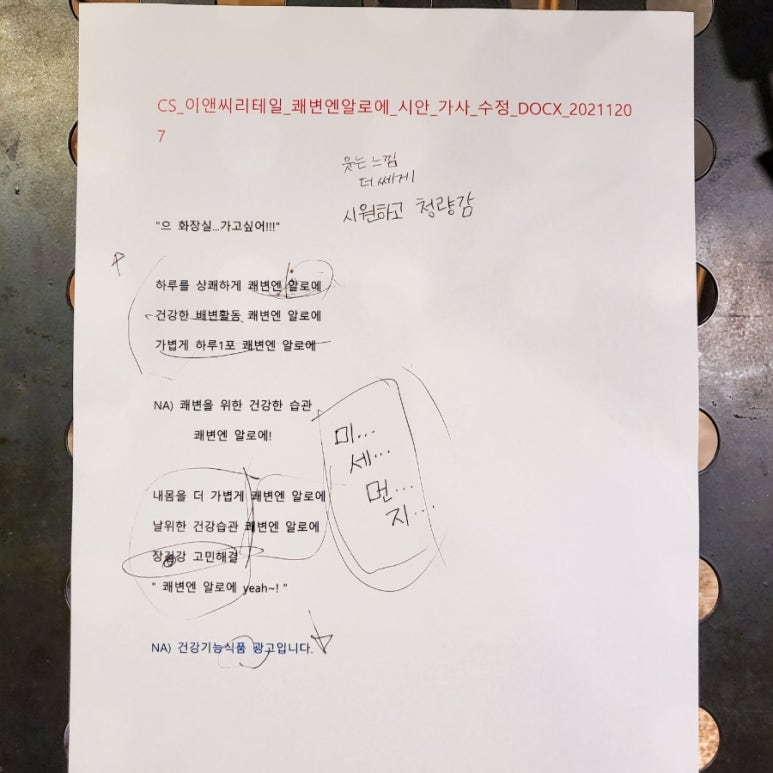 CS_이앤씨리테일_쾌변엔알로에_시안_가사_수정_DOCX_2021120
7
웃는 느낌
더 쎄게
시원하고 청량감
"으 화장실...가고싶어!!!"
하루를 상쾌하게 쾌변엔 알로에
건강한 배변활동 쾌변엔 알로에
가볍게 하루1포 쾌변엔 알로에
NA) 쾌변을 위한 건강한 습관
쾌변엔 알로에!
미...
세...
먼...
지...
내몸을 더 가볍게 쾌변엔 알로에
날위한 건강습관 쾌변엔 알로에
장건강 고민해결
" 쾌변엔 알로에 yeah~! "
NA) 건강기능식품 광고입니다.